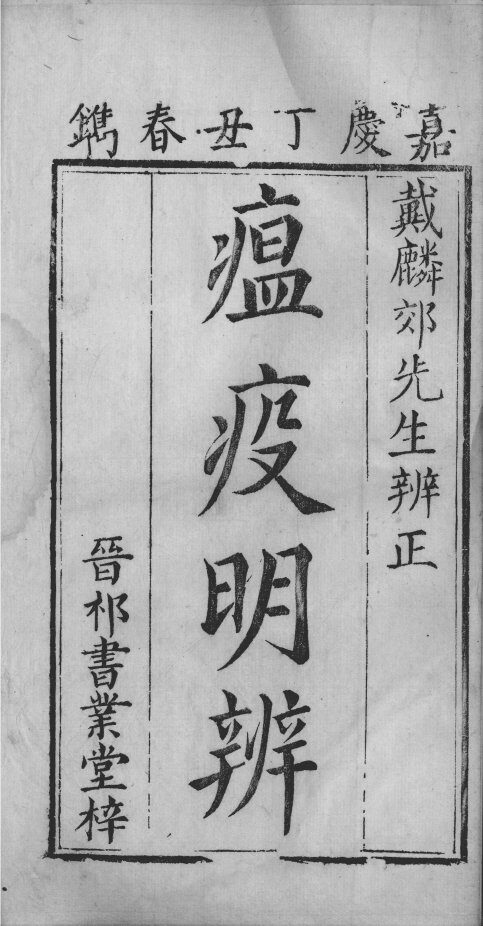 嘉慶丁丑春鐫
戴麟郊先生辨正
瘟疫明辨
晉祁書業堂梓